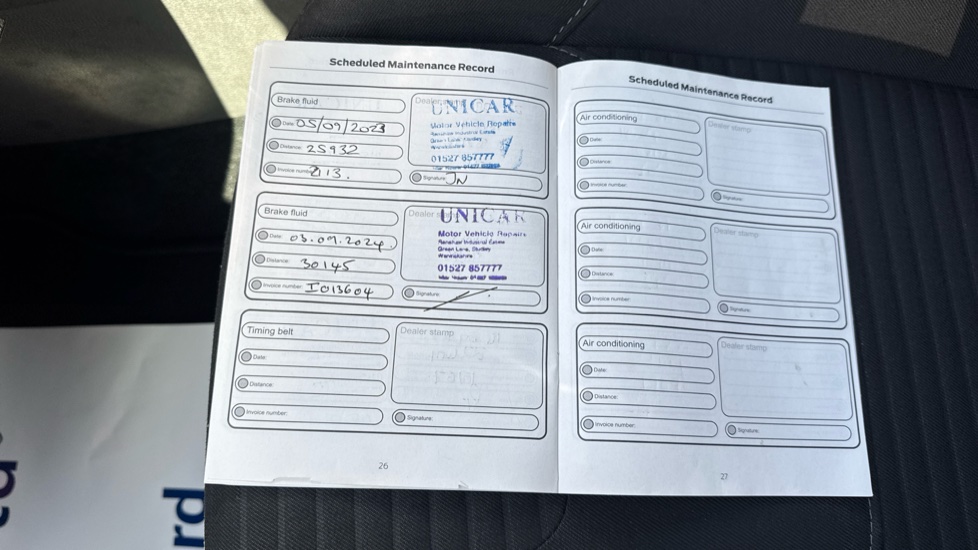 Scheduled Maintenance Record
Brake fluid
Dealer stamp
UNICAR
Motor Vehicle Repairs
Date: 05/09/2023
Distance: 25932
01527 857777
Invoice number: 213.
Signature: JN
Brake fluid
Dealer stamp
UNICAR
Motor Vehicle Repairs
Date: 03.09.2024
Green Lane, Studley
Warwickshire
Distance: 30145
01527 857777
Invoice number: I013604
Signature:
Timing belt
Dealer stamp
Date:
Distance:
Invoice number:
Signature:
26
Scheduled Maintenance Record
Air conditioning
Dealer stamp
Date:
Distance:
Invoice number:
Signature:
Air conditioning
Dealer stamp
Date:
Distance:
Invoice number:
Signature:
Air conditioning
Dealer stamp
Date:
Distance:
Invoice number:
Signature:
27
rd